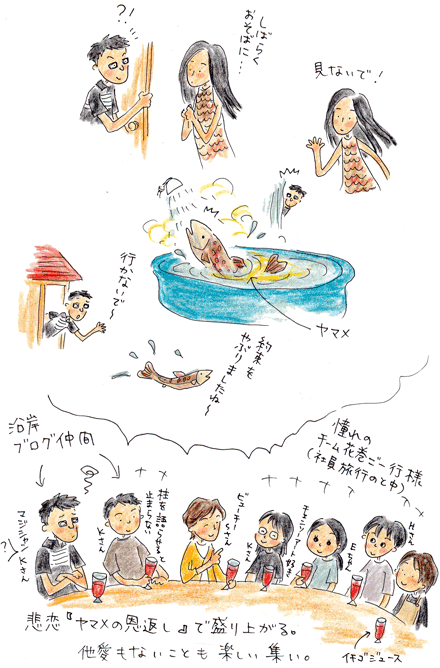 ?!
しばらく
おそばに…
見ないで！
ヤマメ
行かないで〜
約束を
やぶりましたね〜
沿岸
ブログ仲間
憧れの
チーム花巻ご一行様
(社員旅行のと中)
?!
マジシャンKさん
Kさん
技を語らせると
止まらない
ビューティー
Sさん
Kさん
チェーンソーアート好き
Eさん
Hさん
悲恋『ヤマメの恩返し』で盛り上がる。
他愛もないことも楽しい集い。
イチゴジュース